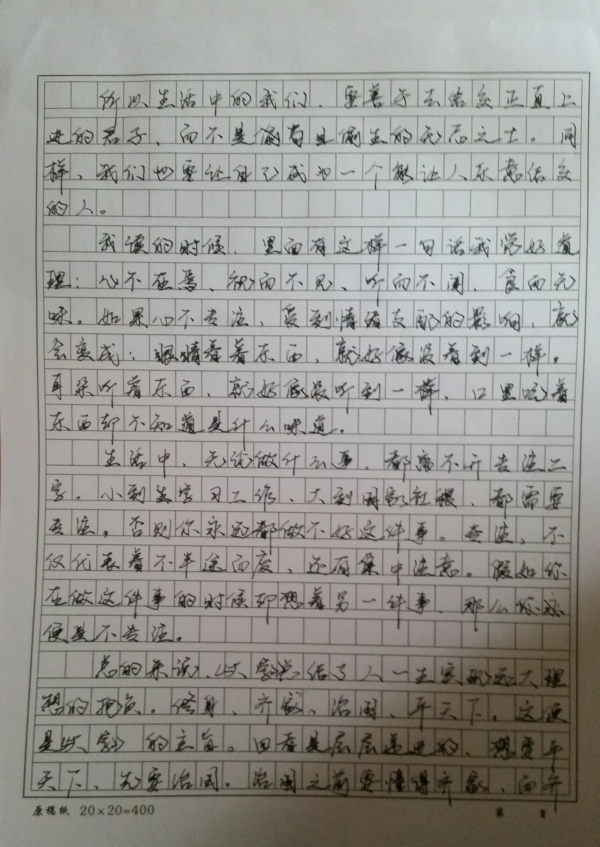 所以生活中的我们，要善于去结交正直上
进的君子，而不是偷苟且偷生的无志之士。同
样，我们也要让自己成为一个能让人乐意结交
的人。
我读的时候，里面有这样一句话我觉好道
理：心不在焉，视而不见，听而不闻，食而无
味。如果心不专注，受到情绪支配的影响，就
会变成：眼睛看着东西，就好像没看到一样。
耳朵听着东西，就好像没听到一样，口里吃着
东西却不知道是什么味道。
生活中，无论做什么事，都离不开专注二
字。小到生字习工作，大到国家社稷，都需要
专注。否则你永远都做不好这件事。专注，不
仅代表着不半途而废，还有集中注意。假如你
在做这件事的时候却想着另一件事，那么你
便是不专注。
总的来说，《大学》括了人一生实现远大理
想的抱负。修身、齐家、治国、平天下。这便
是《大学》的主旨。四者是层层递进的，想要平
天下，先要治国。治国之前要懂得齐家，而齐
原稿纸 20×20=400
第 页